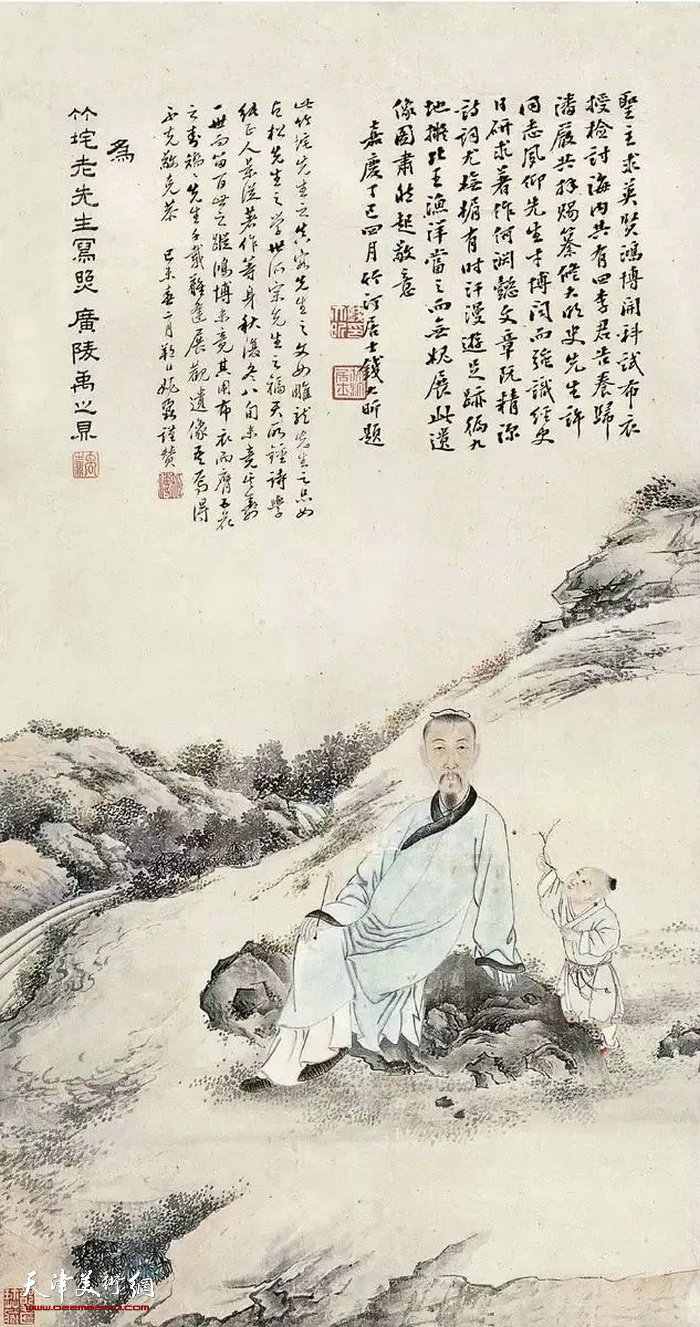 聖主求英賢鴻博開科試布衣
授檢討海內共有四李君告養歸
潘嚴共採燭纂修大明史先生許
同志夙仰先生才博聞而強識經史
日研求著作何淵懿文章既精深
詩詞尤旖旎有時汗漫遊足跡徧九
地擬比王漁洋當之而無愧展此遺
像圖肅然起敬意
嘉慶丁巳四月竹汀居士錢大昕題
此竹垞先生之真容先生之文如雕龍先生之品如
古松先生之學世所宗先生之福天所鍾詩學
繼正人景從著作等身秋復冬八旬未竟生
一世而留百世之蹤鴻博未竟其用布衣而膺
先生千載難逢展觀遺像吾焉得
不克敬克恭 己未春二月 謹贊
為
竹垞老先生寫照 廣陵禹之鼎
天津美術網